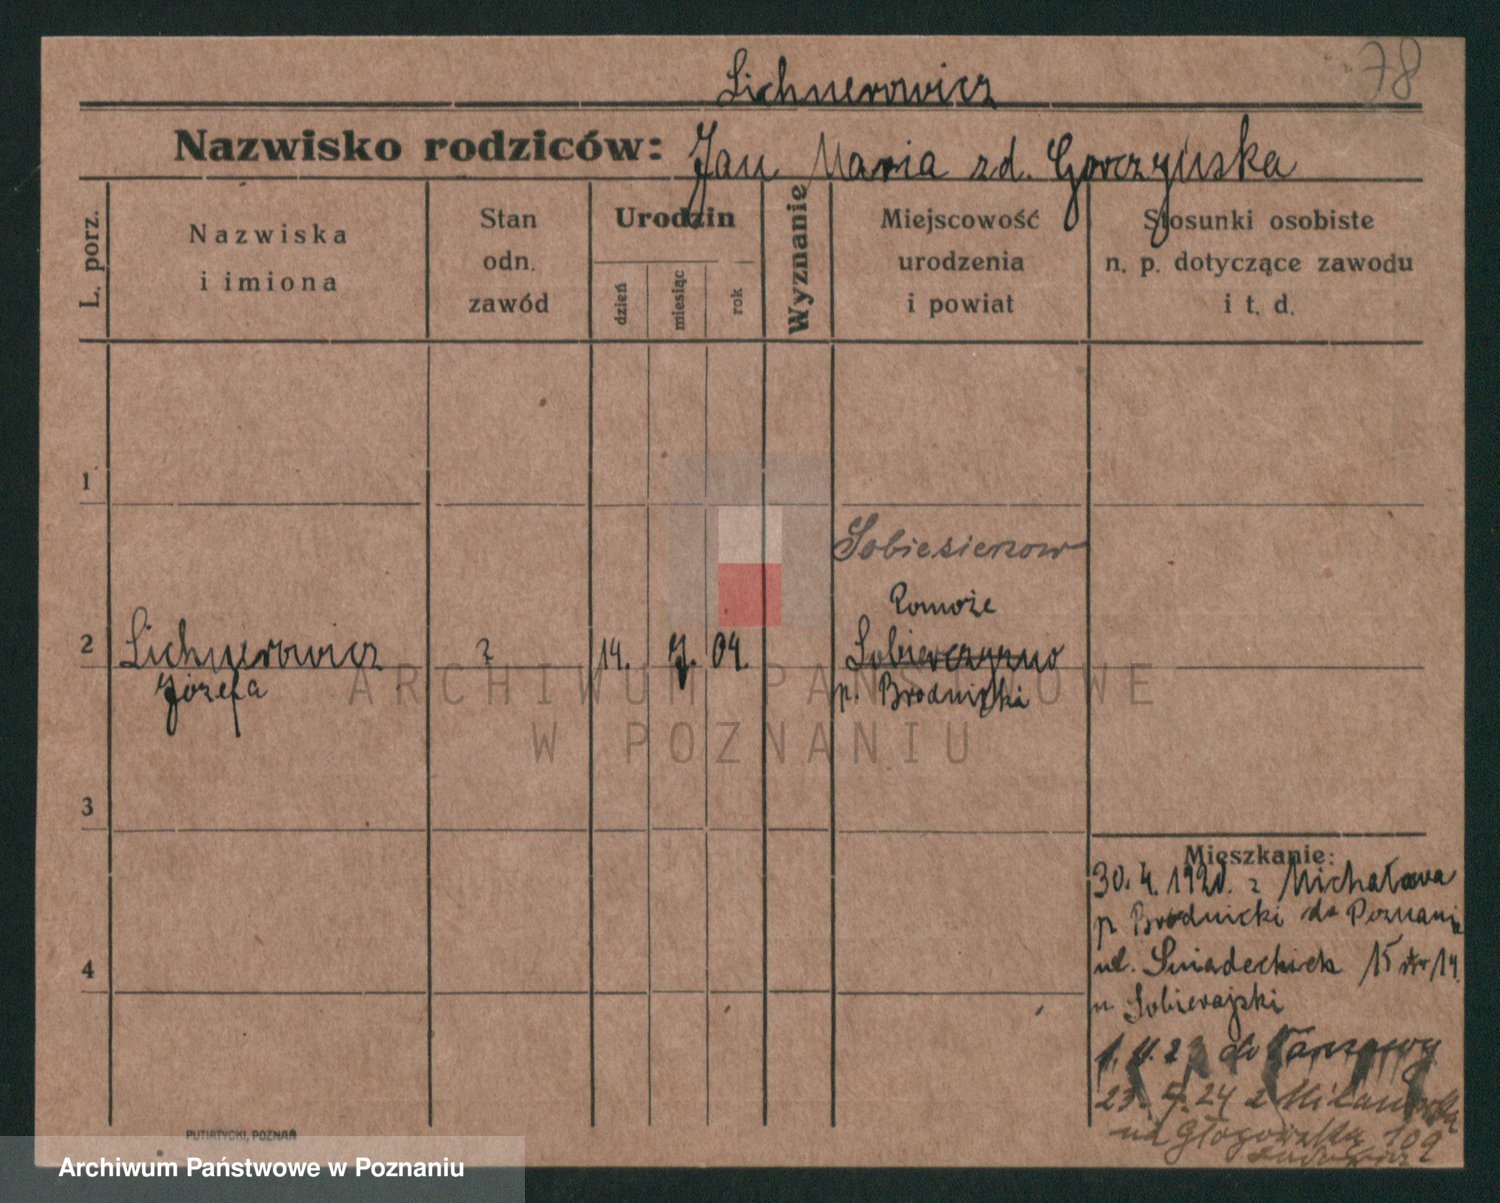 78
Lichnerowicz
Nazwisko rodziców: Jan Maria zd. Gorczyńska
L. porz.
Nazwiska
i imiona
Stan
odn.
zawód
Urodzin
dzień
miesiąc
rok
Wyznanie
Miejscowość
urodzenia
i powiat
Stosunki osobiste
n. p. dotyczące zawodu
i t. d.
1
Sobiesierzow
Pomoże
2 Lichnerowicz ? 14. 7. 04. Sobierczyzno
Józefa p. Brodnicki
ARCHIWUM PAŃSTWOWE
W POZNANIU
3
Mieszkanie:
30. 4. 1920. z Michałowa
p. Brodnicki do Poznania
ul. Śniadeckich 15 14
u Sobierajski
4
do Warszawy
23. 5. 24 z
na Głogowską 109
PUTIATYCKI, POZNAŃ
Archiwum Państwowe w Poznaniu